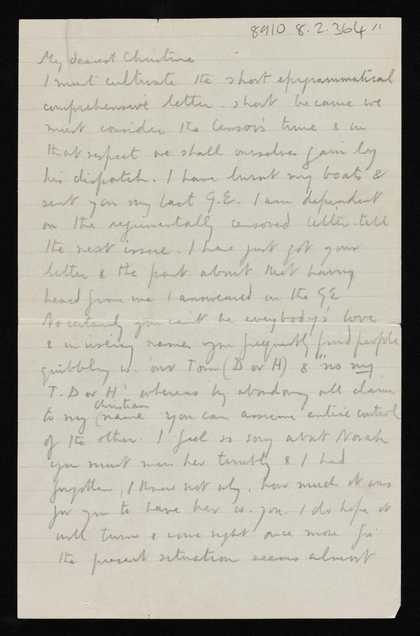 8910 8.2.364 "
My dearest Christine
I must cultivate the short epigrammatical
comprehensive letter. short because we
must consider the Censor's time & in
that respect we shall ourselves gain by
his dispatch. I have burnt my boats &
sent you my last G.E. I am dependent
on the regimentally censored letter till
the next issue. I have just got your
letter & the part about not having
heard from me I answered in the GE
No certainly you can't be everybody's love
& in using names you frequently find people
quibbling w. our Tom (D or H) & "no my
T. D or H" whereas by abandoning all claim
to my Christian name you can assume entire control
of the other. I feel so sorry about Norah
you must miss her terribly & I had
forgotten, I know not why, how much it was
for you to have her w. you. I do hope it
will turn & come right once more for
the present situation seems almost